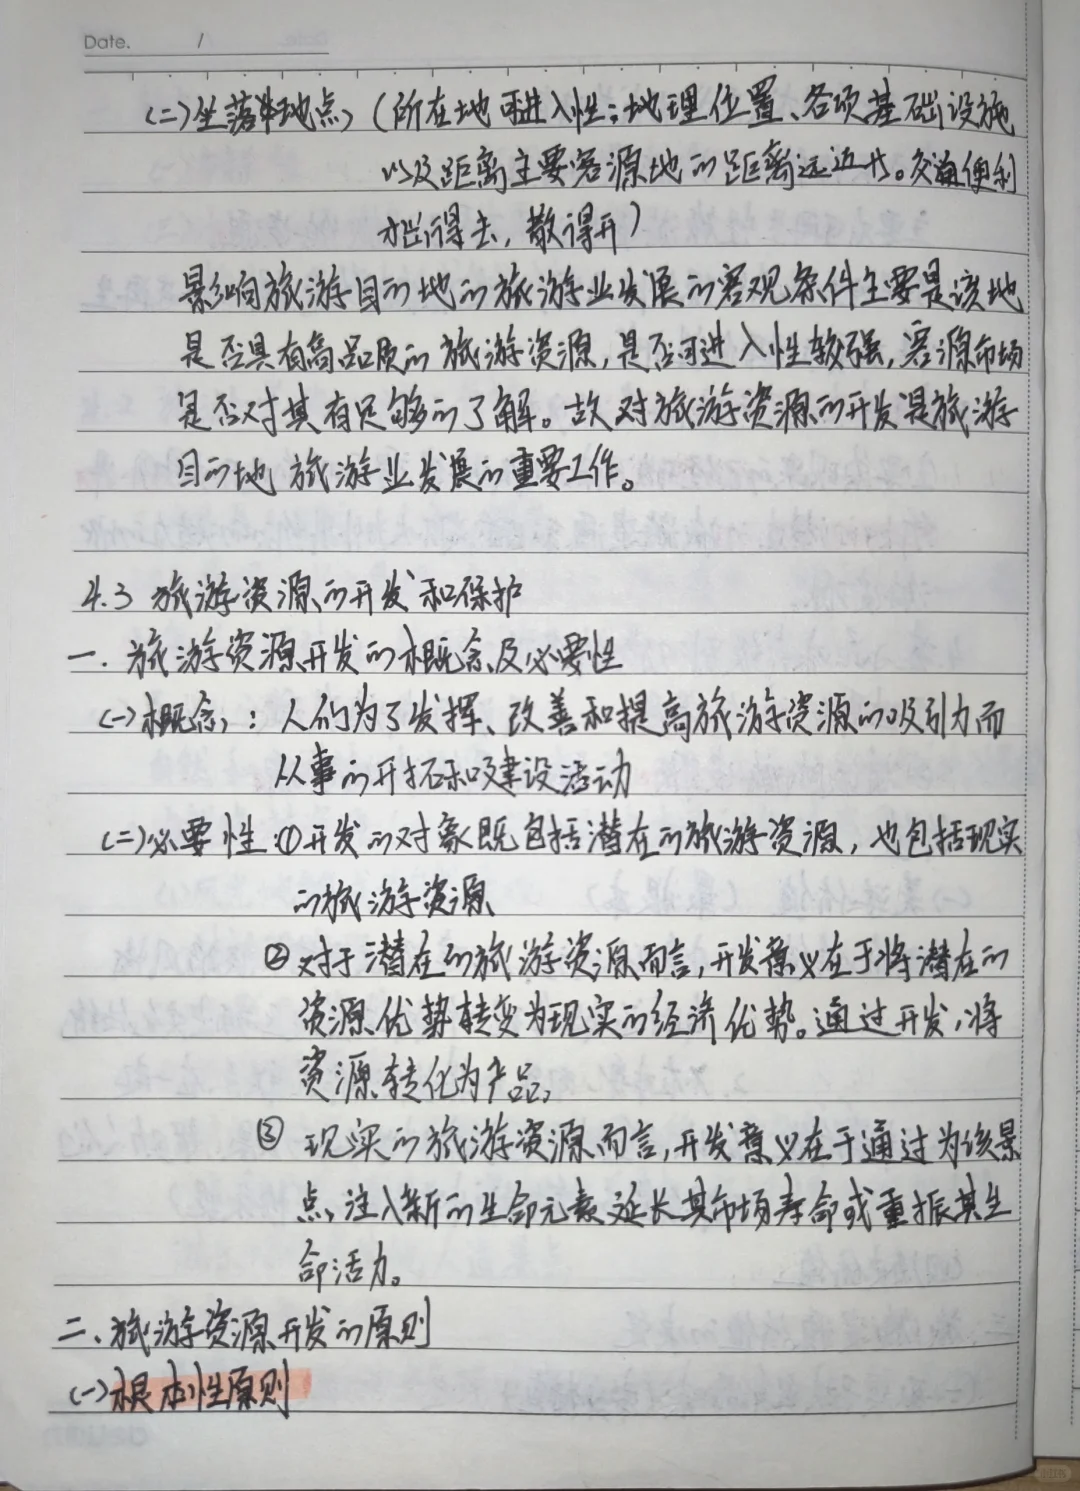 Date. /
(二)坐落地点(所在地可进入性:地理位置、各项基础设施
以及距离主要客源地的距离远近等。交通便利
才出得去,散得开)
影响旅游目的地的旅游业发展的客观条件主要是该地
是否具有高品质的旅游资源,是否可进入性较强,客源市场
是否对其有足够的了解。故对旅游资源的开发是旅游
目的地旅游业发展的重要工作。
4.3 旅游资源的开发和保护
一.旅游资源开发的概念及必要性
(一)概念:人们为了发挥、改善和提高旅游资源的吸引力而
从事的开拓和建设活动
(二)必要性①开发的对象既包括潜在的旅游资源,也包括现实
的旅游资源
②对于潜在的旅游资源而言,开发意义在于将潜在的
资源优势转变为现实的经济优势。通过开发,将
资源转化为产品
③现实的旅游资源而言,开发意义在于通过为该景
点注入新的生命元素延长其市场寿命或重振其生
命活力。
二、旅游资源开发的原则
(一)根本性原则